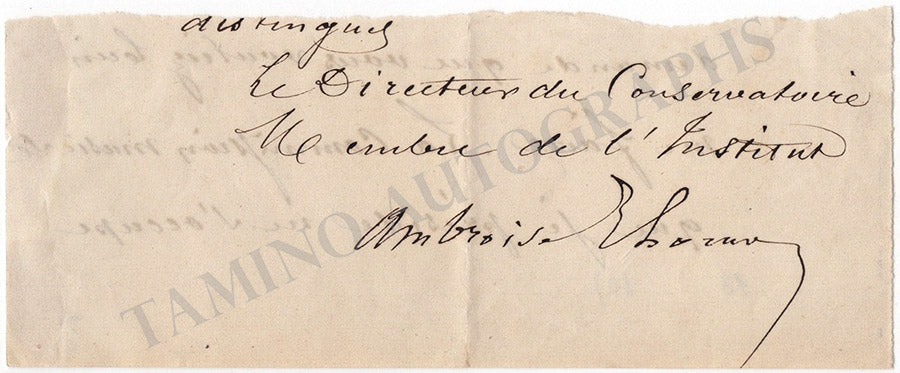 distingués
Le Directeur du Conservatoire
Membre de l' Institut
Ambroise Thomas
TAMINO AUTOGRAPHS